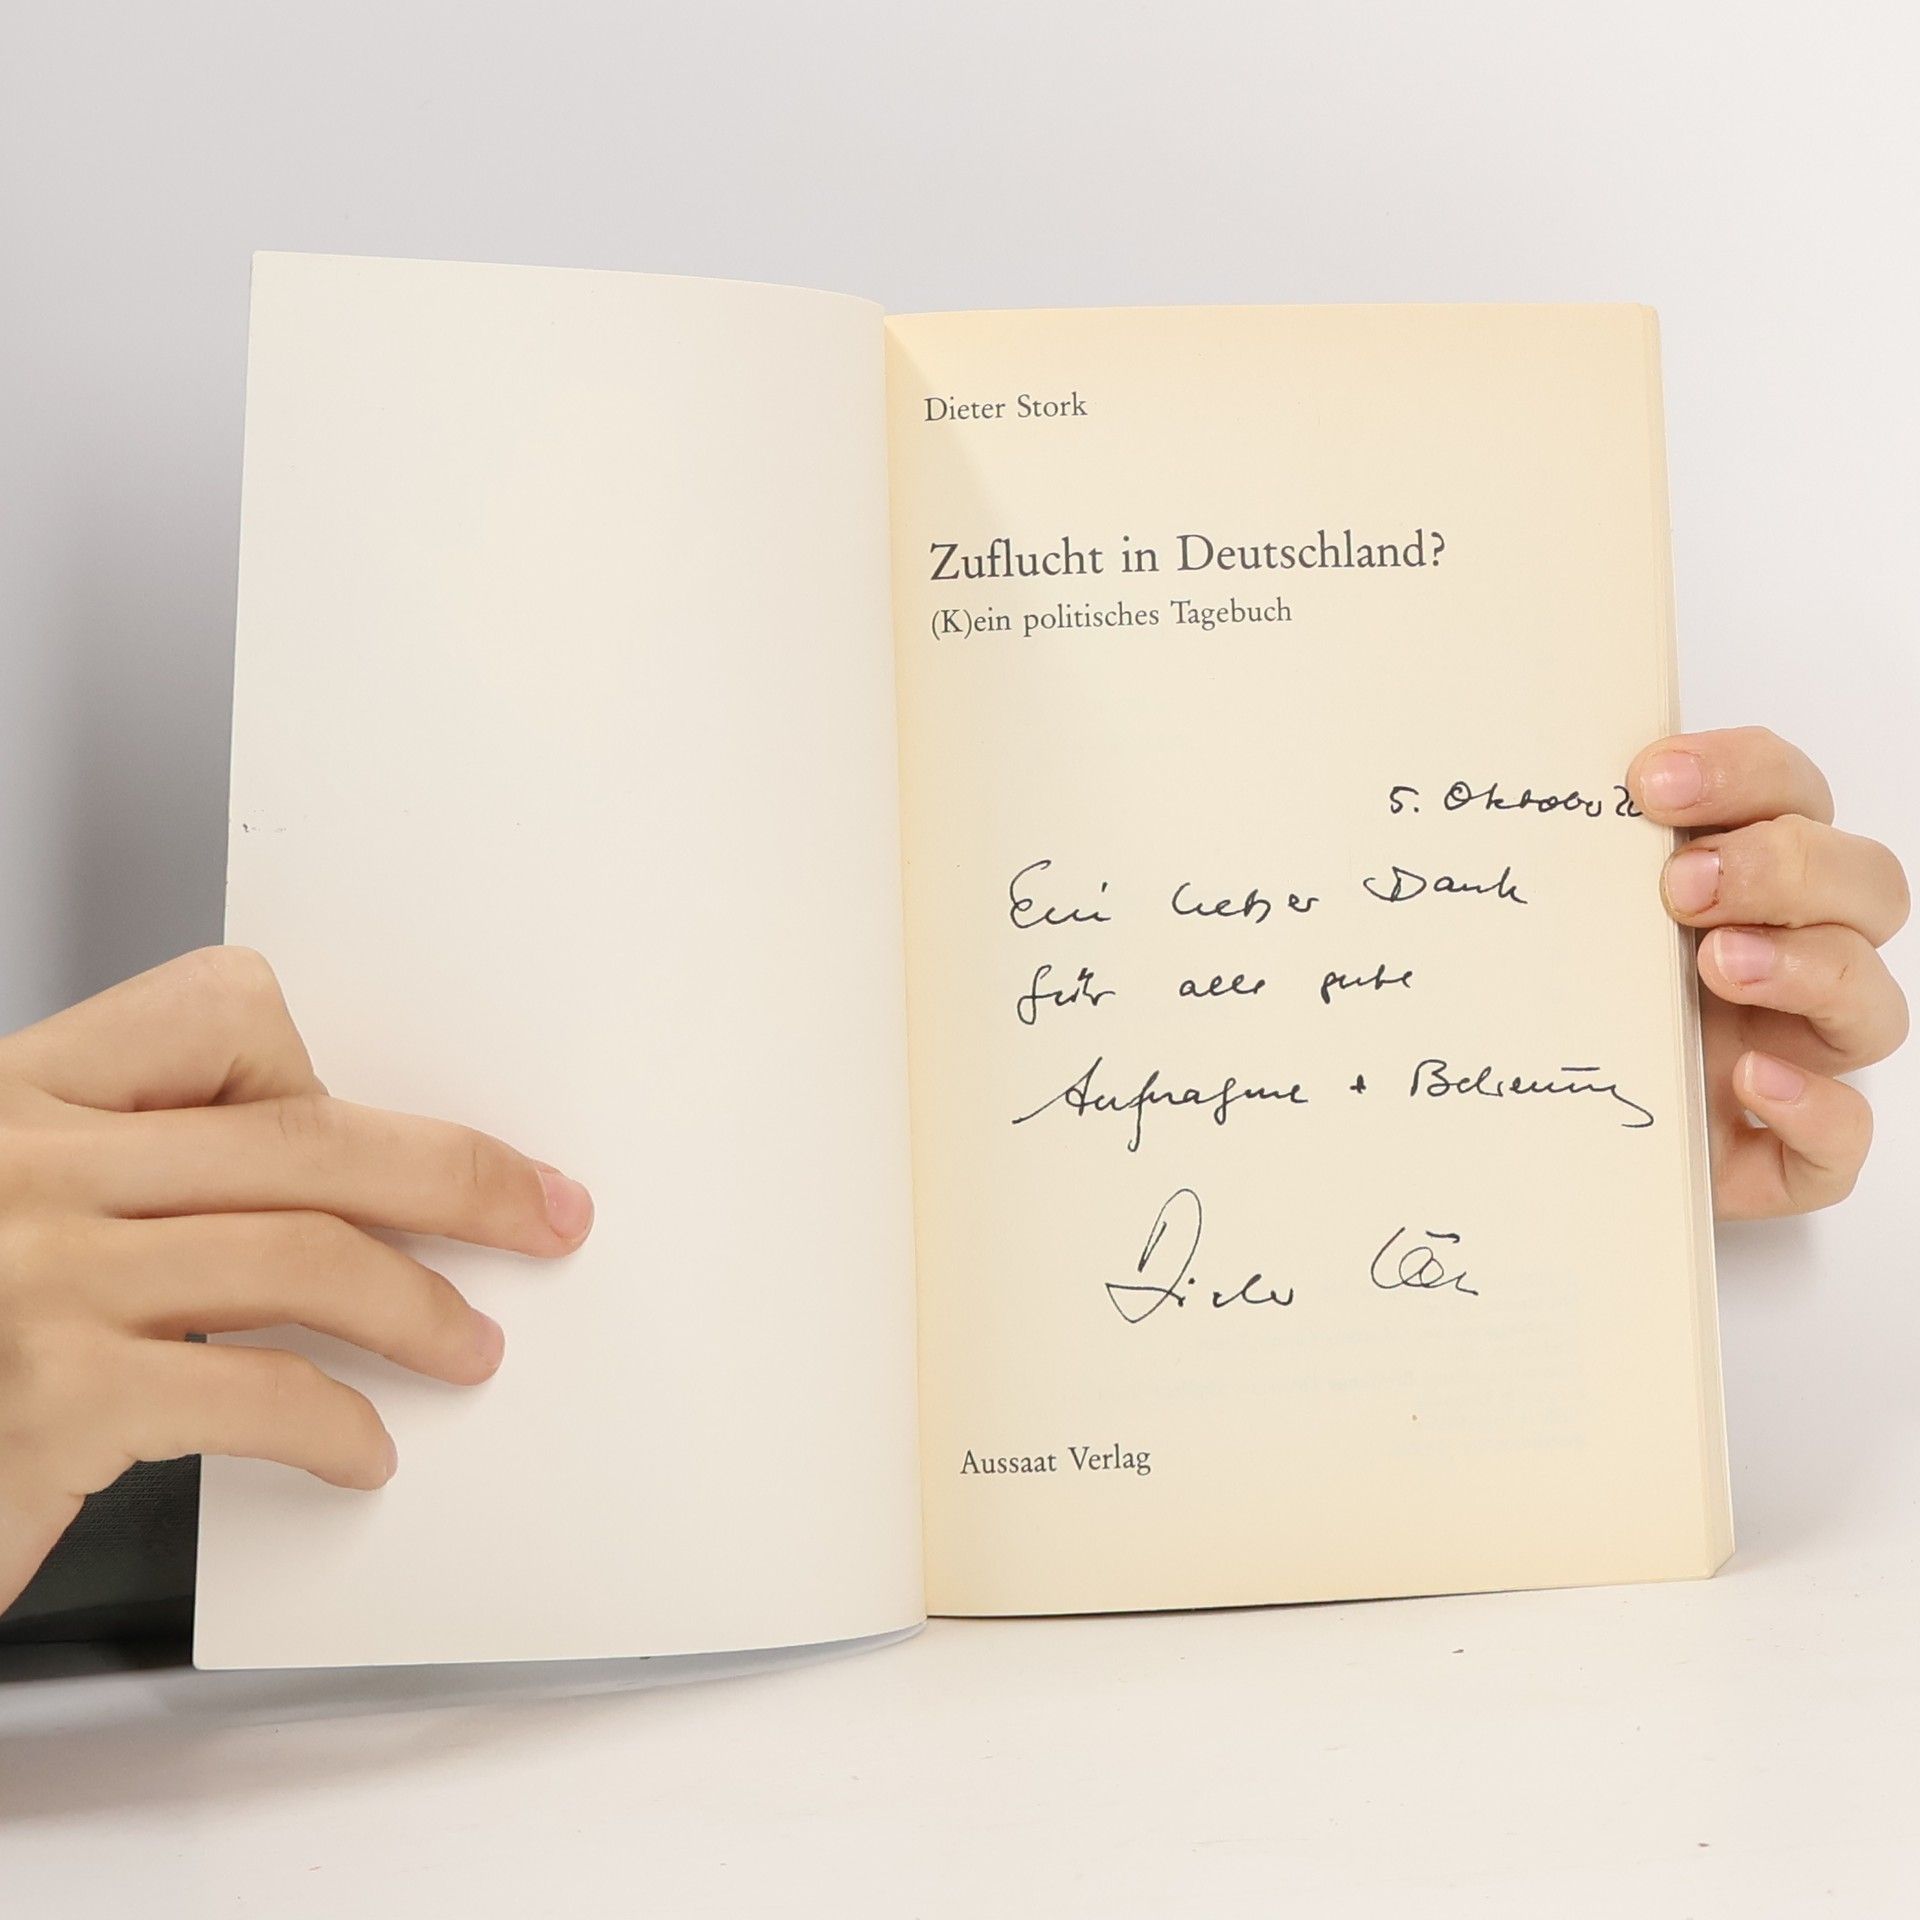 Dieter Stork
Zuflucht in Deutschland?
(K)ein politisches Tagebuch
5. Oktober
Ein lieber Dank
für alle gute
Aufnahme + Betreuung
Dieter
Aussaat Verlag